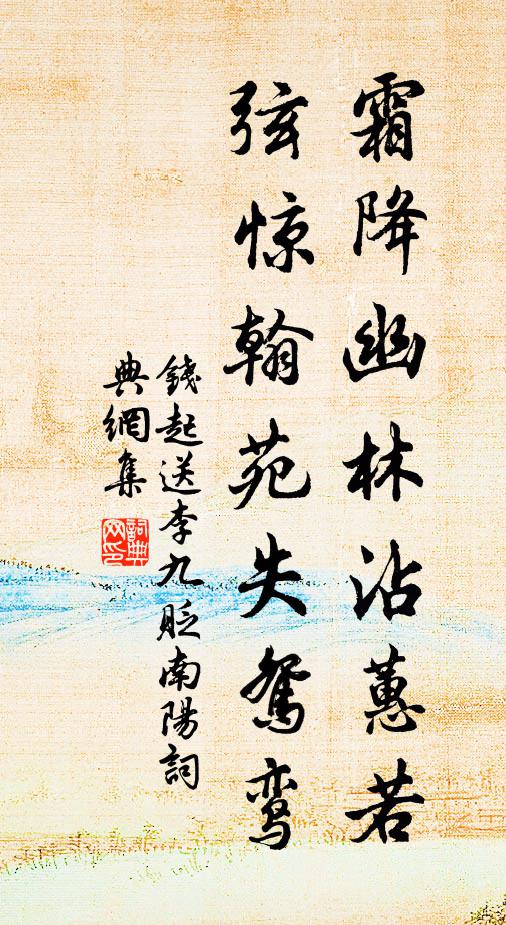 霜降幽林沾蕙若
弦惊翰苑失鸳鸾
錢起送李九貶南陽詞
典網集
詞典网印